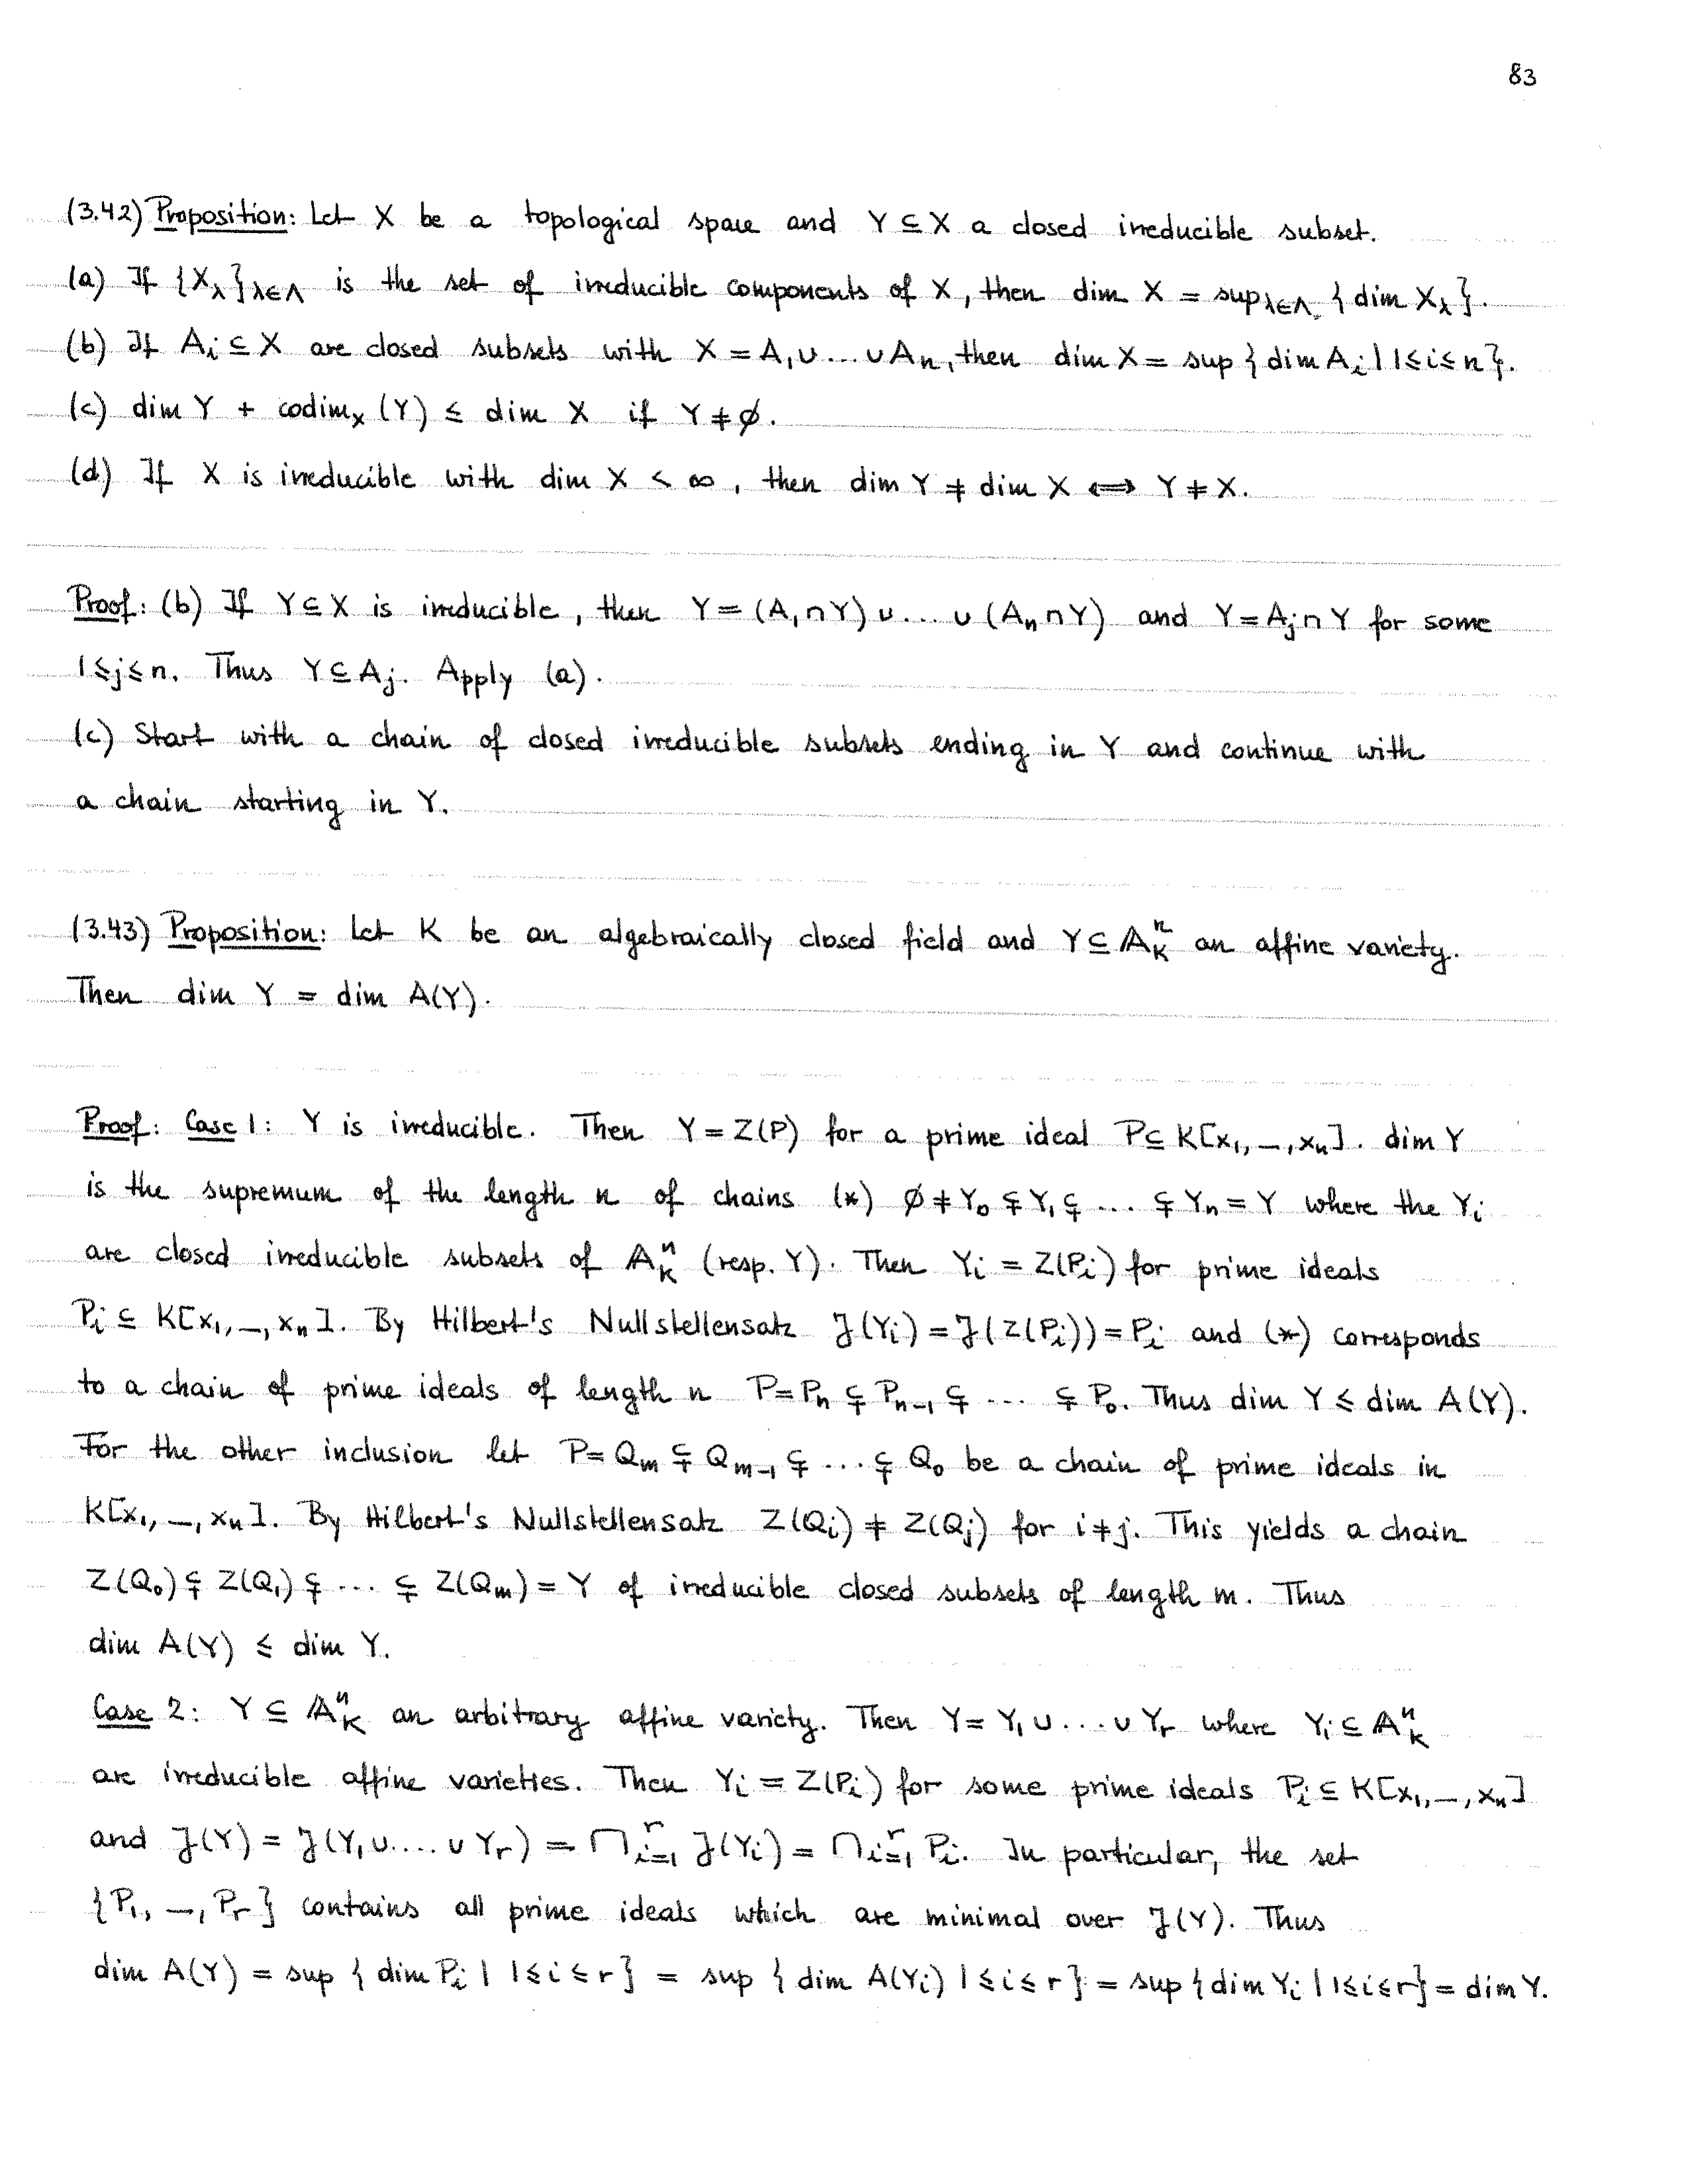 83
(3.42) Proposition: Let X be a topological space and Y ⊆ X a closed irreducible subset.
(a) If {X_λ}_{λ∈Λ} is the set of irreducible components of X, then dim X = sup_{λ∈Λ} {dim X_λ}.
(b) If A_i ⊆ X are closed subsets with X = A_1 ∪ ... ∪ A_n, then dim X = sup {dim A_i | 1≤i≤n}.
(c) dim Y + codim_X (Y) ≤ dim X if Y ≠ ∅.
(d) If X is irreducible with dim X < ∞, then dim Y ≠ dim X ⟺ Y ≠ X.
Proof: (b) If Y ⊆ X is irreducible, then Y = (A_1 ∩ Y) ∪ ... ∪ (A_n ∩ Y) and Y = A_j ∩ Y for some
1≤j≤n. Thus Y ⊆ A_j. Apply (a).
(c) Start with a chain of closed irreducible subsets ending in Y and continue with
a chain starting in Y.
(3.43) Proposition: Let K be an algebraically closed field and Y ⊆ 𝔸_K^n an affine variety.
Then dim Y = dim A(Y).
Proof: Case 1: Y is irreducible. Then Y = Z(P) for a prime ideal P ⊆ K[x_1, –, x_n]. dim Y
is the supremum of the length n of chains (*) ∅ ≠ Y_0 ⊊ Y_1 ⊊ ... ⊊ Y_n = Y where the Y_i
are closed irreducible subsets of 𝔸_K^n (resp. Y). Then Y_i = Z(P_i) for prime ideals
P_i ⊆ K[x_1, –, x_n]. By Hilbert's Nullstellensatz J(Y_i) = J(Z(P_i)) = P_i and (*) corresponds
to a chain of prime ideals of length n P = P_n ⊊ P_{n-1} ⊊ ... ⊊ P_0. Thus dim Y ≤ dim A(Y).
For the other inclusion let P = Q_m ⊊ Q_{m-1} ⊊ ... ⊊ Q_0 be a chain of prime ideals in
K[x_1, –, x_n]. By Hilbert's Nullstellensatz Z(Q_i) ≠ Z(Q_j) for i≠j. This yields a chain
Z(Q_0) ⊊ Z(Q_1) ⊊ ... ⊊ Z(Q_m) = Y of irreducible closed subsets of length m. Thus
dim A(Y) ≤ dim Y.
Case 2: Y ⊆ 𝔸_K^n an arbitrary affine variety. Then Y = Y_1 ∪ ... ∪ Y_r where Y_i ⊆ 𝔸_K^n
are irreducible affine varieties. Then Y_i = Z(P_i) for some prime ideals P_i ⊆ K[x_1, –, x_n]
and J(Y) = J(Y_1 ∪ .... ∪ Y_r) = ⋂_{i=1}^r J(Y_i) = ⋂_{i=1}^r P_i. In particular, the set
{P_1, –, P_r} contains all prime ideals which are minimal over J(Y). Thus
dim A(Y) = sup {dim P_i | 1≤i≤r} = sup {dim A(Y_i) 1≤i≤r} = sup {dim Y_i | 1≤i≤r} = dim Y.